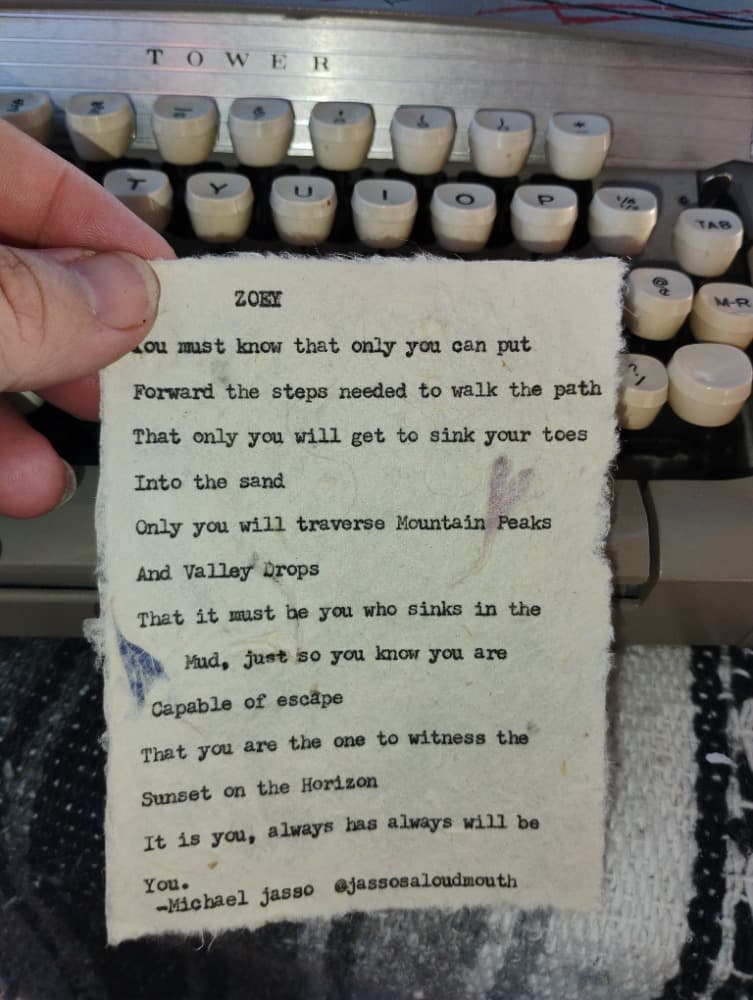 TOWER
T Y U I O P
TAB
M-R
ZOEY
You must know that only you can put
Forward the steps needed to walk the path
That only you will get to sink your toes
Into the sand
Only you will traverse Mountain Peaks
And Valley Drops
That it must be you who sinks in the
Mud, just so you know you are
Capable of escape
That you are the one to witness the
Sunset on the Horizon
It is you, always has always will be
You.
-Michael jasso @jassosaloudmouth